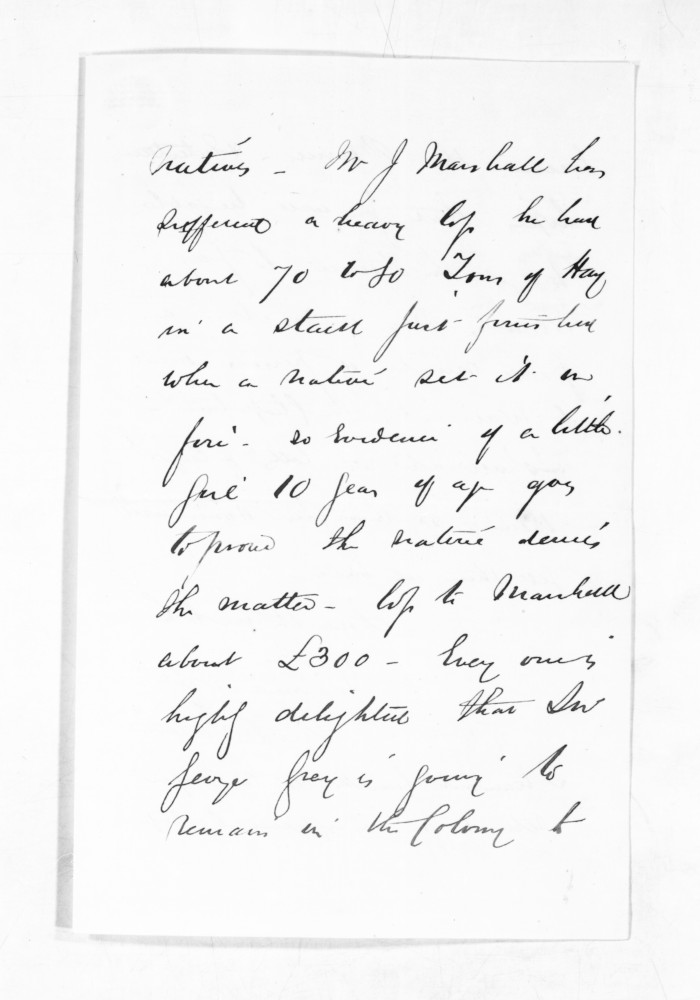 natives - Mr J Marshall has
suffered a heavy loss he had
about 70 to 80 Tons of Hay
in a stack just finished
when a native set it on
fire - so Evidence of a little
girl 10 years of age goes
to prove the native denies
the matter - loss to Marshall
about £300 - Every one is
highly delighted that Sir
George Grey is going to
remain in the Colony to